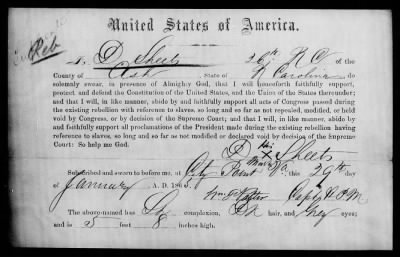 Reb
United States of America.
I, D Sheets 26th N C of the
County of Ash, State of N Carolina do
solemnly swear, in presence of Almighty God, that I will henceforth faithfully support,
protect and defend the Constitution of the United States, and the Union of the States thereunder;
and that I will, in like manner, abide by and faithfully support all acts of Congress passed during
the existing rebellion with reference to slaves, so long and so far as not repealed, modified, or held
void by Congress, or by decision of the Supreme Court; and that I will, in like manner, abide by
and faithfully support all proclamations of the President made during the existing rebellion having
reference to slaves, so long and so far as not modified or declared void by decision of the Supreme
Court: So help me God.
his
D X Sheets
mark
Subscribed and sworn to before me, at City Point Va. this 29th day
of January A. D. 1865.
Capt & P M
The above-named has Lt complexion, Dk hair, and Grey eyes;
and is 5 feet 8 inches high.